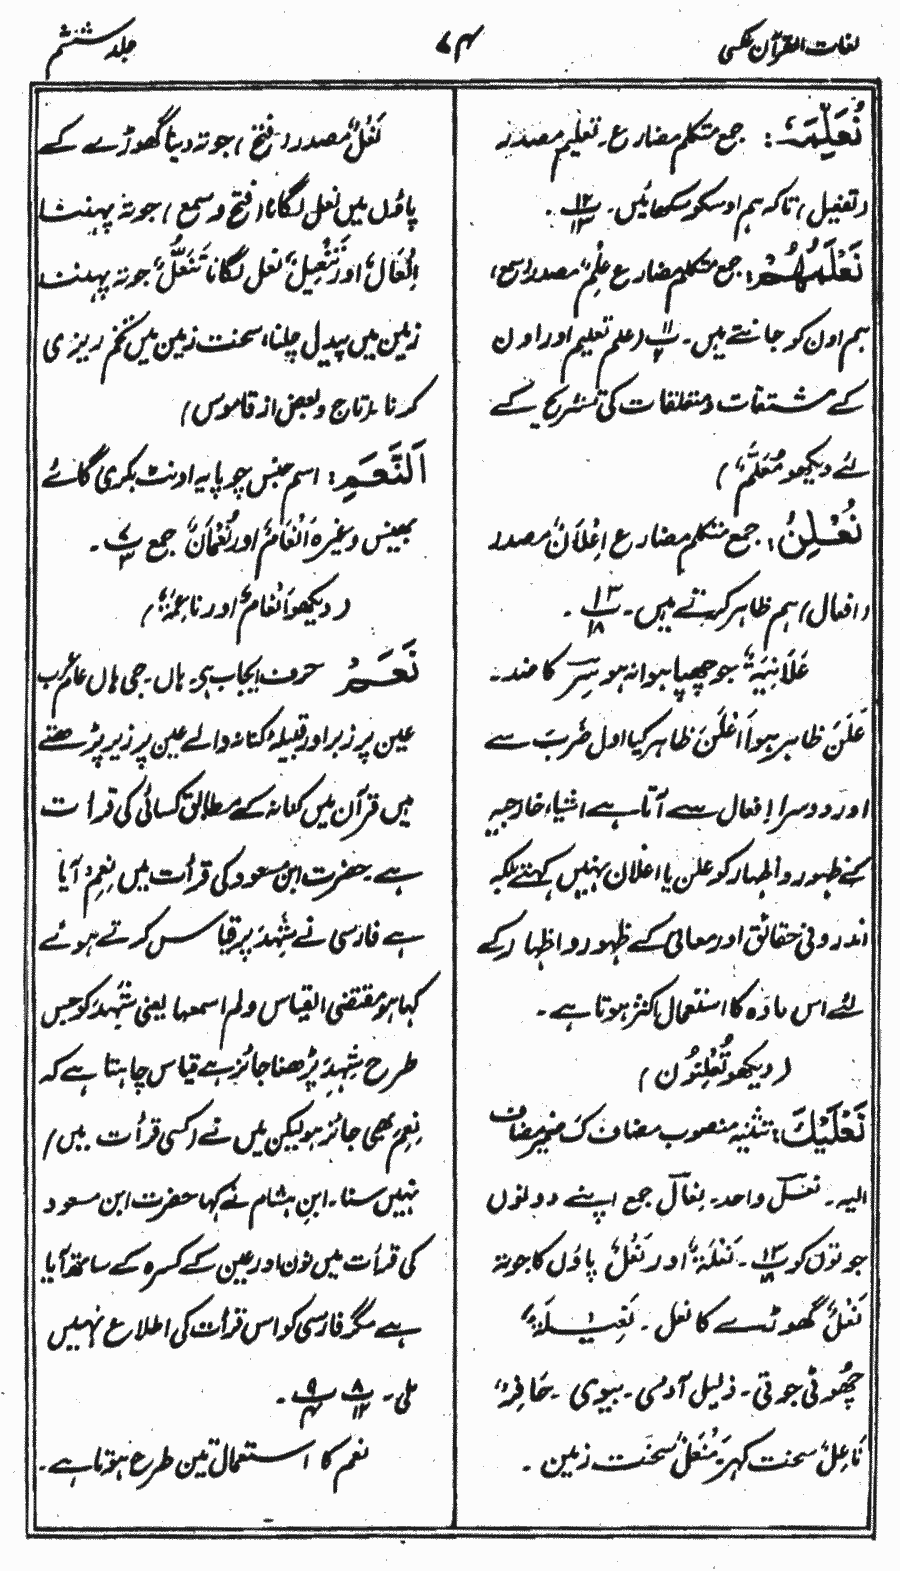 لغات القرآن عکسی
۷۴
جلد ششم
نُعَلِّمَہٗ: جمع متکلم مضارع۔ تعلیم مصدر
(تفعیل) تاکہ ہم اوسکو سکھائیں۔ ۱۲/۱۳۔
نَعْلَمُہُمْ: جمع متکلم مضارع عِلْمٌ مصدر (سمع)
ہم اون کو جانتے ہیں۔ ۱۱/۲ (علم تعلیم اور اون
کے مشتقات و متعلقات کی تشریح کے
لئے دیکھو مُعَلَّمٌ)
نُعْلِنُ: جمع متکلم مضارع اِعْلَانٌ مصدر
(افعال) ہم ظاہر کرتے ہیں۔ ۱۳/۱۸۔
عَلَانِیَۃٌ جو چھپا ہوا نہ ہو سِرّ کا ضد۔
عَلَنَ ظاہر ہوا اَعْلَنَ ظاہر کیا اول ضَرَبَ سے
اور دوسرا اِفعال سے آتا ہے اشیاء خارجیہ
کے ظہور و اظہار کو علن یا اعلان نہیں کہتے بلکہ
اندرونی حقائق اور معانی کے ظہور و اظہار کے
لئے اس مادہ کا استعمال اکثر ہوتا ہے۔
(دیکھو تُعْلِنُوْنَ)
نَعْلَیْکَ: تثنیہ منصوب مضاف کَ ضمیر مضاف
الیہ۔ نعل واحد۔ نِعَال جمع اپنے دونوں
جوتوں کو ۱۳/۱۸۔ نَعْلَۃٌ اور نَعْلٌ پاؤں کا جوتہ
نَعْلٌ گھوڑے کا نعل۔ نَعِیْلَۃٌ
چھوٹی جوتی۔ ذلیل آدمی۔ بیوی۔ حَافِرٌ
نَاعِلٌ سخت کھر۔ مُنَعَلٌ سخت زمین۔
نَعْلٌ مصدر (فتح) جوتہ دینا گھوڑے کے
پاؤں میں نعل لگانا (فتح و سمع) جوتہ پہننا
اِنْعَالٌ اور تَنْعِیْلٌ نعل لگانا تَنَعُّلٌ جوتہ پہننا
زمین میں پیدل چلنا، سخت زمین میں تخم ریزی
کرنا (تاج و بعض از قاموس)
اَلنَّعَمِ: اسم جنس چوپایہ اونٹ بکری گائے
بھینس وغیرہ اَنْعَامٌ اور نُعْمَانٌ جمع ۷/۳۔
(دیکھو اَنْعَامٌ اور نَاعِمَۃٌ)
نَعَمْ حرف ایجاب ہے۔ ہاں۔ جی ہاں عام عرب
عین پر زبر اور قبیلہ کنانہ والے عین پر زیر پڑھتے
ہیں قرآن میں کنانہ کے مطابق کسائی کی قرأت
ہے۔ حضرت ابن مسعود کی قرأت میں نِعِمْ آیا
ہے فارسی نے شِہِدَ پر قیاس کرتے ہوئے
کہا ہو مقتضی القیاس ولم اسمعہا یعنی شَہِدَ کو جس
طرح شِہِدَ پڑھنا جائز ہے قیاس چاہتا ہے کہ
نِعِمْ بھی جائز ہو لیکن میں نے (کسی قرأت میں)
نہیں سنا۔ ابن ہشام نے کہا حضرت ابن مسعود
کی قرأت میں نون اور عین کے کسرہ کے ساتھ آیا
ہے مگر فارسی کو اس قرأت کی اطلاع نہیں
ملی۔ ۸/۱۲ ۹/۴۔
نعم کا استعمال تین طرح ہوتا ہے۔